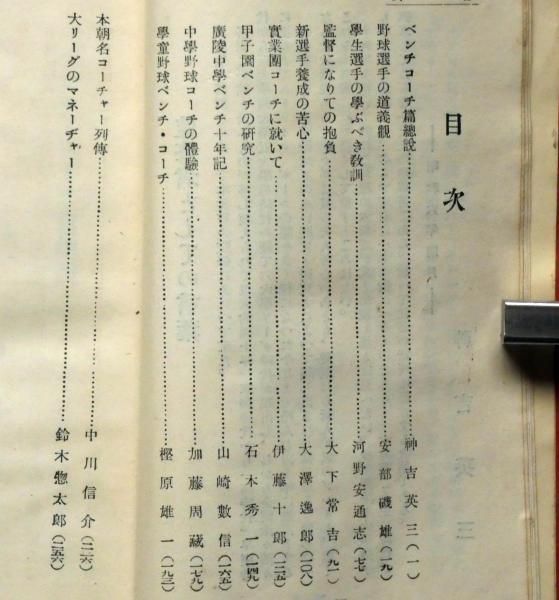 目次
ベンチコーチ篇總說……神吉英三(一)
野球選手の道義觀……安部磯雄(一九)
學生選手の學ぶべき敎訓……河野安通志(七七)
監督になりての抱負……大下常吉(九一)
新選手養成の苦心……大澤逸郎(一〇八)
實業團コーチに就いて……伊藤十郎(一三五)
甲子園ベンチの硏究……石本秀一(一四九)
廣陵中學ベンチ十年記……山崎數信(一六五)
中學野球コーチの體驗……加藤周藏(一七九)
學童野球ベンチ・コーチ……樫原雄一(一九三)
本朝名コーチャー列傳……中川信介(二二六)
大リーグのマネーヂャー……鈴木惣太郎(二五六)